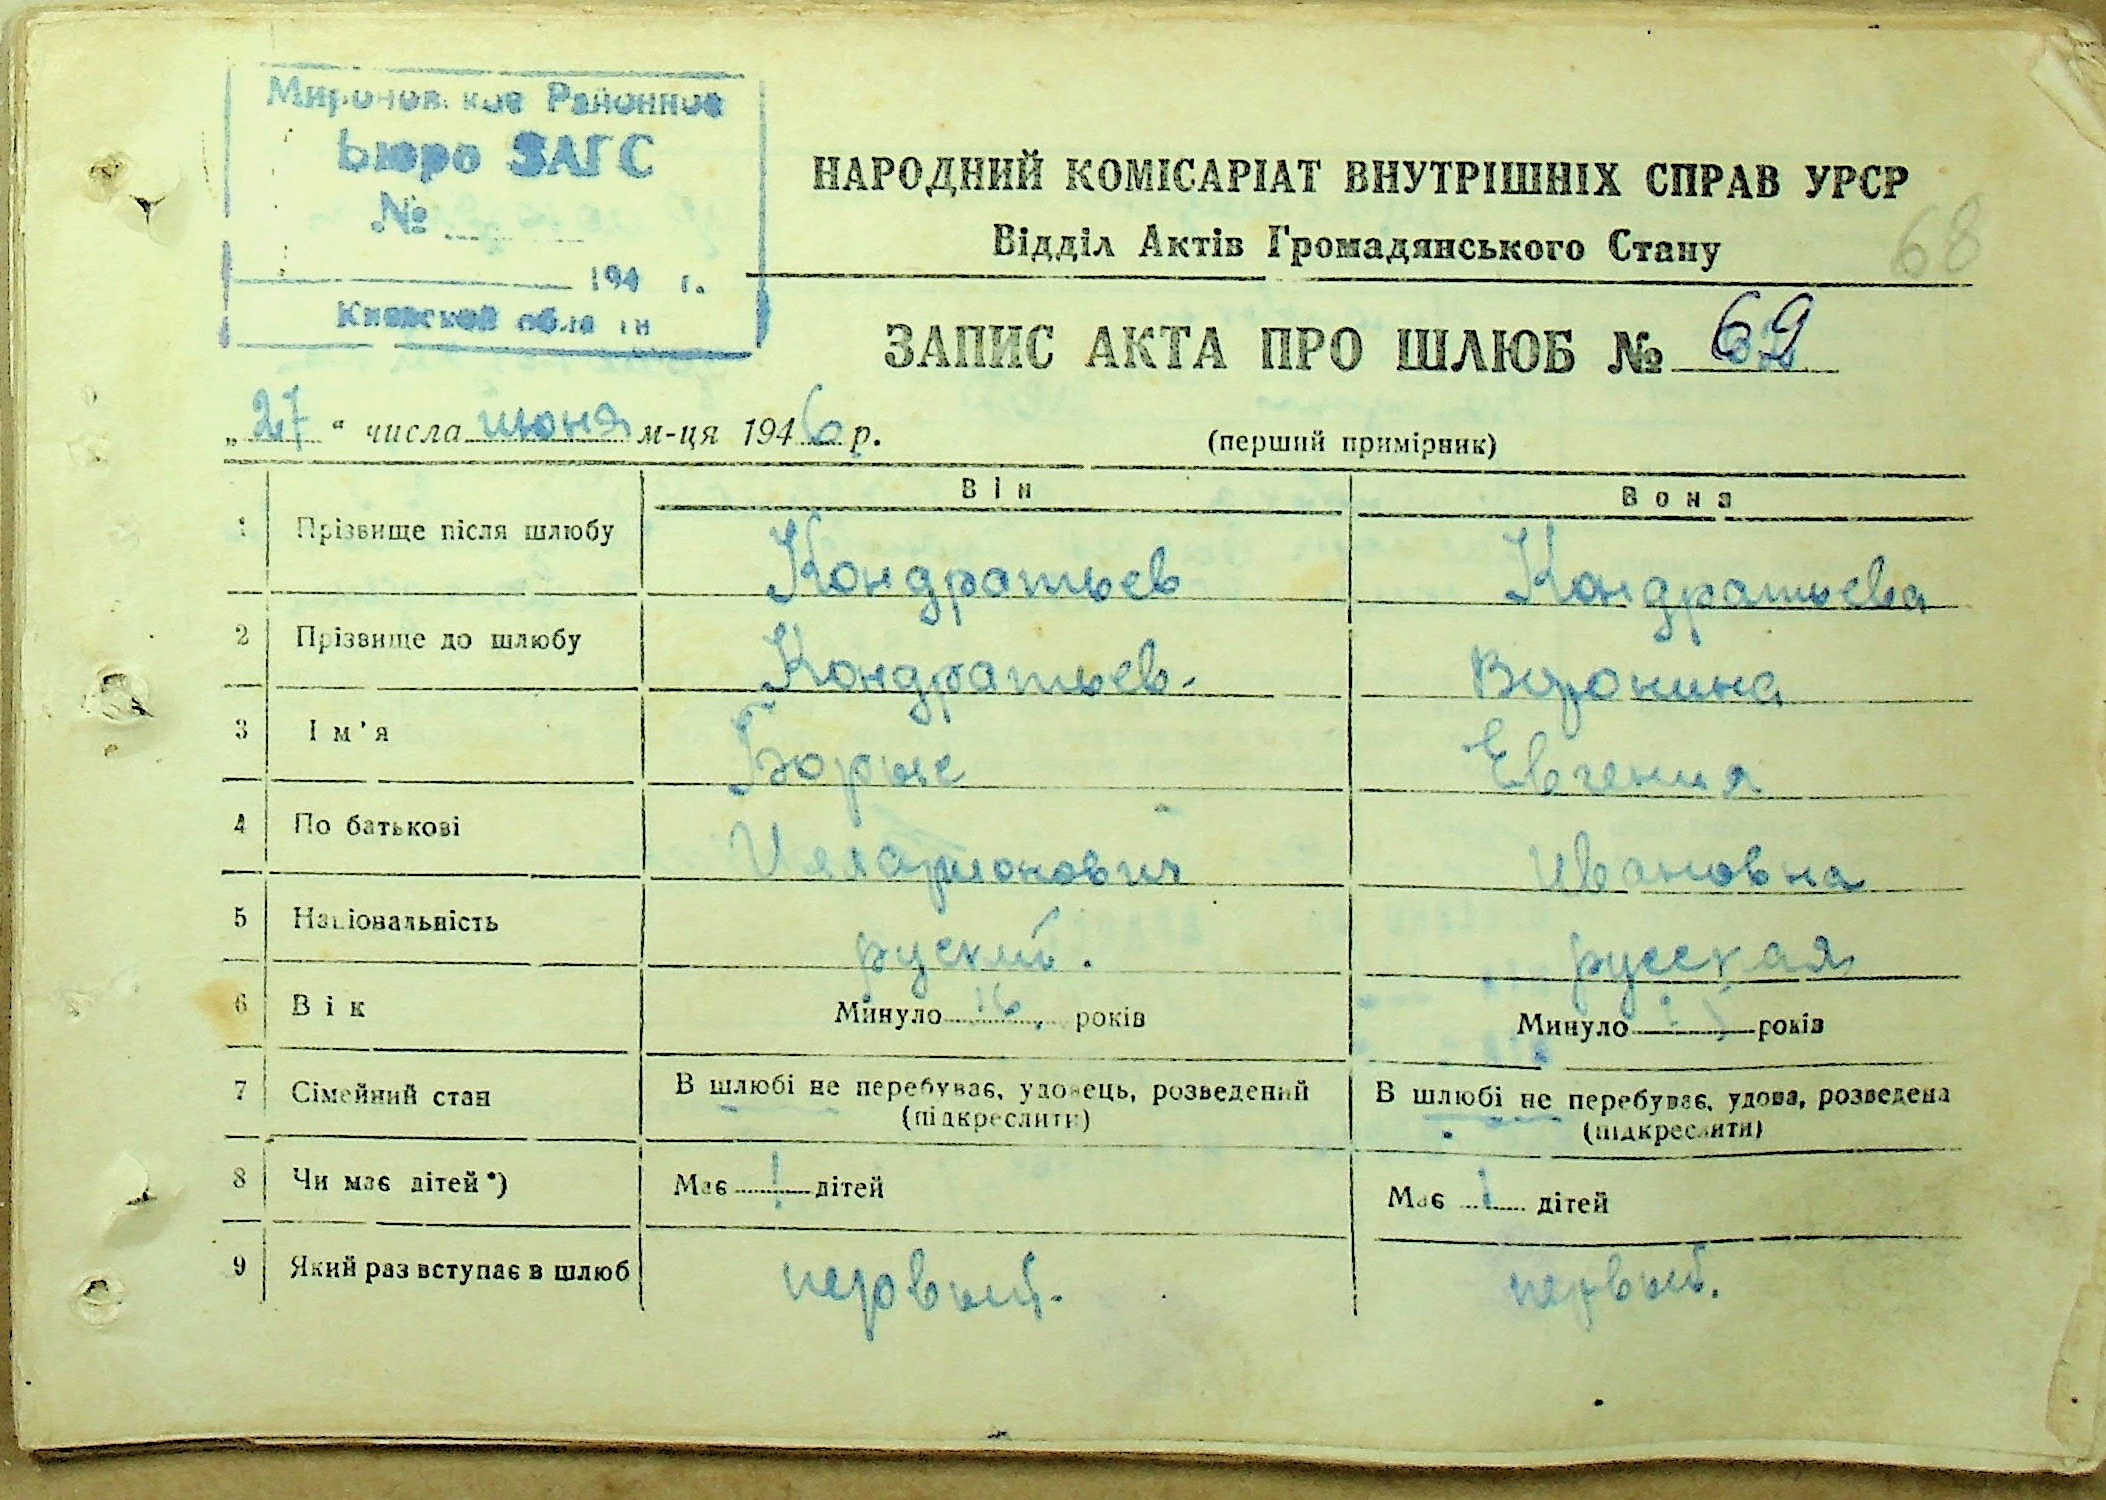 Мироновское Районное
Бюро ЗАГС
№
194 г.
Киевской области
НАРОДНИЙ КОМІСАРІАТ ВНУТРІШНІХ СПРАВ УРСР
Відділ Актів Громадянського Стану
68
ЗАПИС АКТА ПРО ШЛЮБ № 69
„27“ числа июня м-ця 1946 р.
(перший примірник)
Він Вона
1 Прізвище після шлюбу Кондратьев Кондратьева
2 Прізвище до шлюбу Кондратьев. Воронина
3 Ім'я Борис Евгения
4 По батькові Илларионович Ивановна
5 Національність руский. русская
6 Вік Минуло років Минуло років
7 Сімейний стан В шлюбі не перебуває, удовець, розведений В шлюбі не перебуває, удова, розведена
(підкреслити) (підкреслити)
8 Чи має дітей*) Має 1 дітей Має 1 дітей
9 Який раз вступає в шлюб первый. первый.